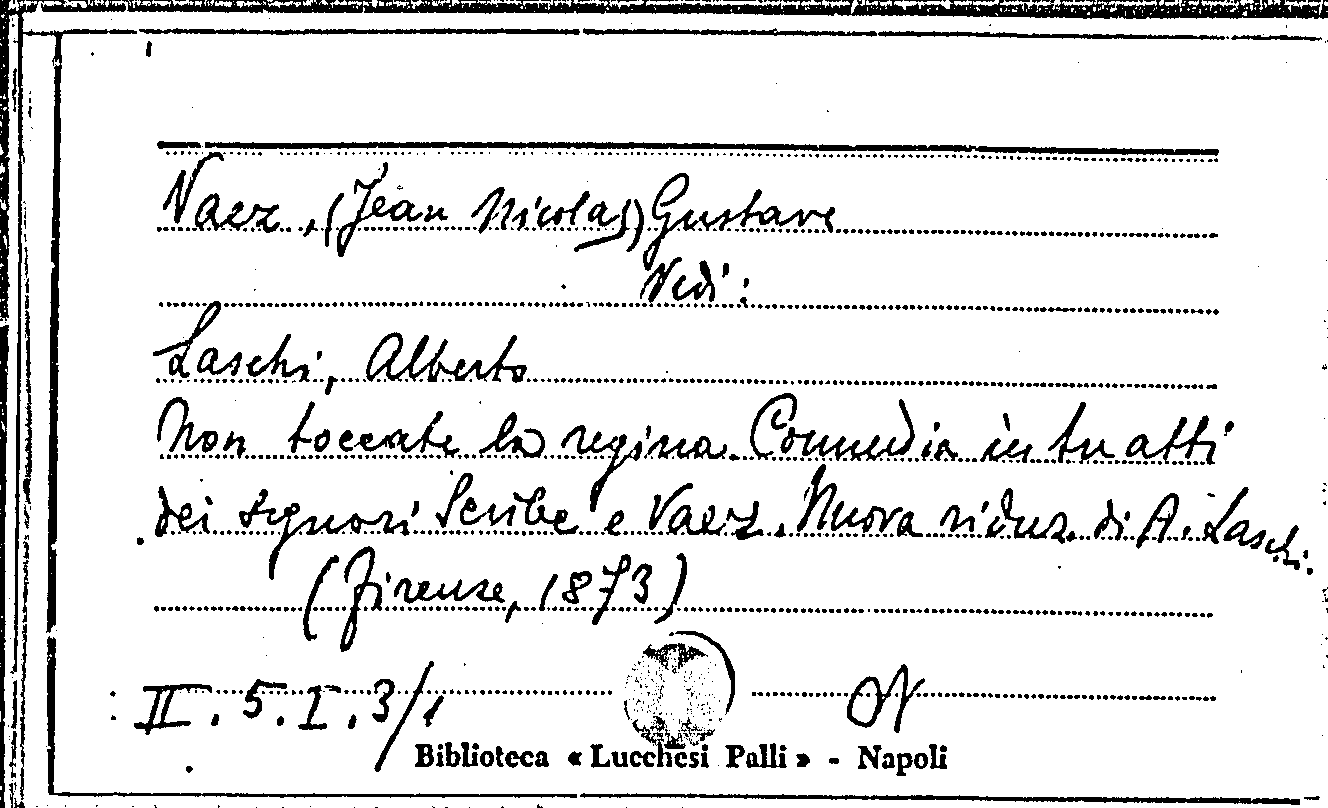 Vaez, (Jean Nicolas) Gustave
Vedi:
Laschi, Alberto
Non toccate la regina. Commedia in tre atti
dei signori Scribe e Vaez. Nuova riduz. di A. Laschi.
(Firenze, 1873)
II. 5. I. 3/1
Biblioteca « Lucchesi Palli » - Napoli